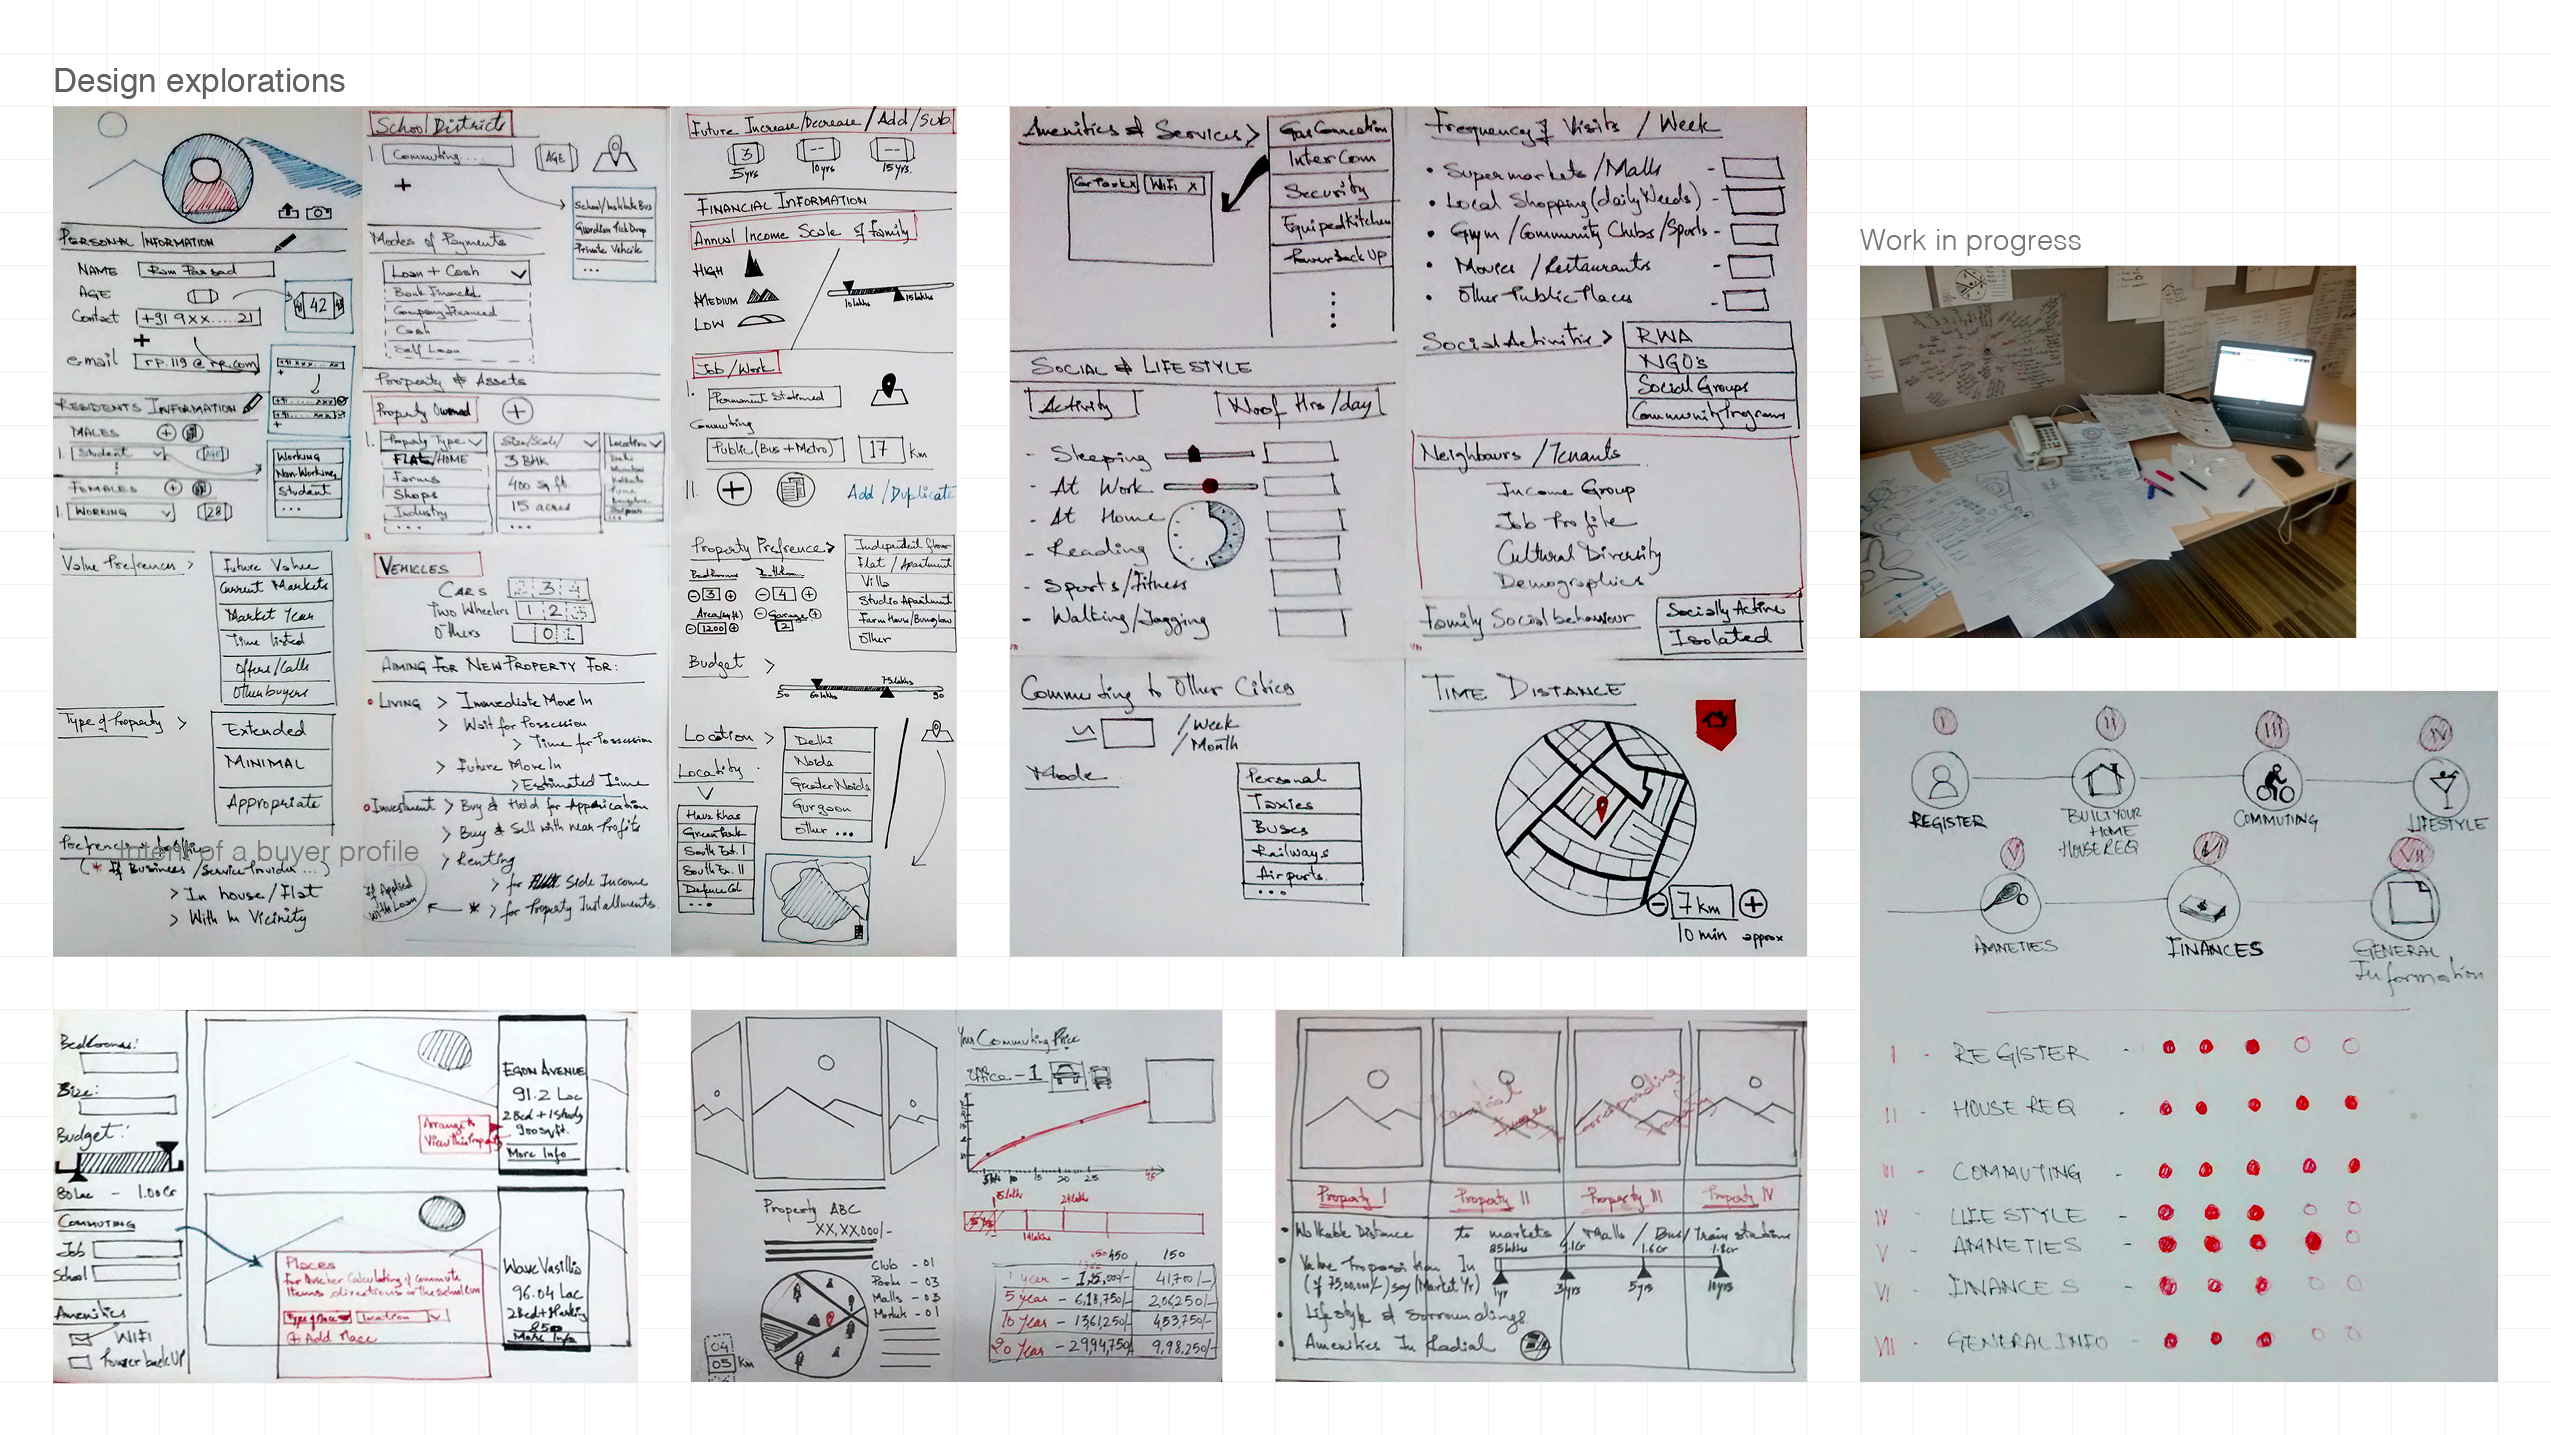 Design explorations
PERSONAL INFORMATION
NAME Ram Parsad
AGE
42
Contact +91 9XX.....21
e-mail rp.119@rp.com
RESIDENTS INFORMATION
MALES
1. Student AGE
FEMALES
1. WORKING 28
WORKING
Non-Working
Student
...
Value Prefrences >
Future Value
Current Markets
Market Year
Time listed
Offers/Calls
Other buyers
Type of Property >
Extended
MINIMAL
Appropriate
Intent of a buyer profile
(* If Business/Service Provider...)
> In house/Flat
> With In Vicinity
School Districts
1. Commuting.... AGE
School/Institute Bus
Guardian Pick Drop
Private Vehicle
...
Modes of Payments
Loan + Cash
Bank Financed
Company Financed
Cash
Self Loan
Property & Assets
Property Owned
1. Property Type Size/Scale/ Location
FLAT/HOME 3 BHK
Farms 400 sq ft
Shops 15 acres
Industry ...
...
VEHICLES
CARS 2 3 4
Two Wheelers 1 2 3
Others 0 1
AIMING FOR NEW PROPERTY FOR:
LIVING > Immediate Move In
> Wait for Possession
> Time for Possession
> Future Move In
> Estimated Time
Investment > Buy & Hold for
> Buy & Sell with near Profits
> Renting
> for Side Income
* > for Property Installments.
If Applied with Loan
Future Increase/Decrease/Add/Sub.
3 -- --
5yrs 10yrs 15yrs.
FINANCIAL INFORMATION
Annual Income Scale of family
HIGH
MEDIUM
LOW
10 lakhs 15 lakhs
Job/Work
1.
Commuting
Public (Bus + Metro) 17 km
II. Add/Duplicate
Property Prefrence >
Bedrooms
3 4
Area(sqft) Garage
1200 2
Independent floor
Flat / Apartment
Villa
Studio Apartment
Farm House/Bunglow
Other
Budget >
50 60 lakhs 75 lakhs 90
Location >
Delhi
Noida
Greater Noida
Gurgaon
Other ...
Locality
Hauz Khas
Green Park
South Ext. I
South Ex. II
Defence Col
...
Amenities & Services >
Car Park x WiFi x
Gas Connection
InterCom
Security
Equiped Kitchen
Power back UP
Frequency of Visits / Week
• Supermarkets / Malls -
• Local Shopping (daily Needs) -
• Gym / Community Clubs / Sports -
• Movies / Restaurants -
• Other Public Places -
Social Activities >
RWA
NGO's
Social Groups
Community Programs
SOCIAL & LIFESTYLE
Activity No of Hrs/day
- Sleeping
- At Work
- At Home
- Reading
- Sports/Fitness
- Walking/Jogging
Neighbours / Tenants
Income Group
Job Profile
Cultural Diversity
Demographics
Family Social behaviour
Socially Active
Isolated
Commuting to Other Cities
/ Week
/ Month
Mode
Personal
Taxies
Buses
Railways
Airports
...
TIME DISTANCE
7 km
10 min approx
Work in progress
I II III IV
REGISTER
BUILT YOUR HOME
HOUSE REQ
COMMUTING
LIFESTYLE
V VI VII
AMNETIES
FINANCES
GENERAL Information
I - REGISTER -
II - HOUSE REQ -
III - COMMUTING -
IV - LIFE STYLE -
V - AMNETIES -
VI - FINANCES -
VII - GENERAL INFO -
Bedrooms:
Size:
Budget:
80 Lac - 1.00 Cr
COMMUTING
Job
School
Amenities
WIFI
Power back UP
EGON AVENUE
91.2 Lac
2 Bed + 1 Study
900 sqft.
More Info
Arrange to
View this Property
Places
Type of Place Location
+ Add Place
Wave Vasillia
96.04 Lac
More Info
Property ABC
XX,XX,000/-
Club - 01
Park - 03
Malls - 03
Market - 01
04
05 Km
Your Commuting Price
Office - 1
5 lakhs 24 lakhs
14 lakhs
450 150
1 year 41,700/-
5 year - 6,18,750/- 2,06,250/-
10 Year - 1361,250/- 4,53,750/-
20 Year - 29,94,750/- 9,98,250/-
Property I Property II Property III Property IV
• Walkable Distance to markets / Malls / Bus / Train stations
85 lakhs 1.1 Cr 1.6 Cr 1.8 Cr
• Value Proposition In
(of 75,00,000/-) say (Market Yr)
1yr 3yrs 5yrs 10yrs
• Lifestyle & Surroundings
• Amenities In Radial